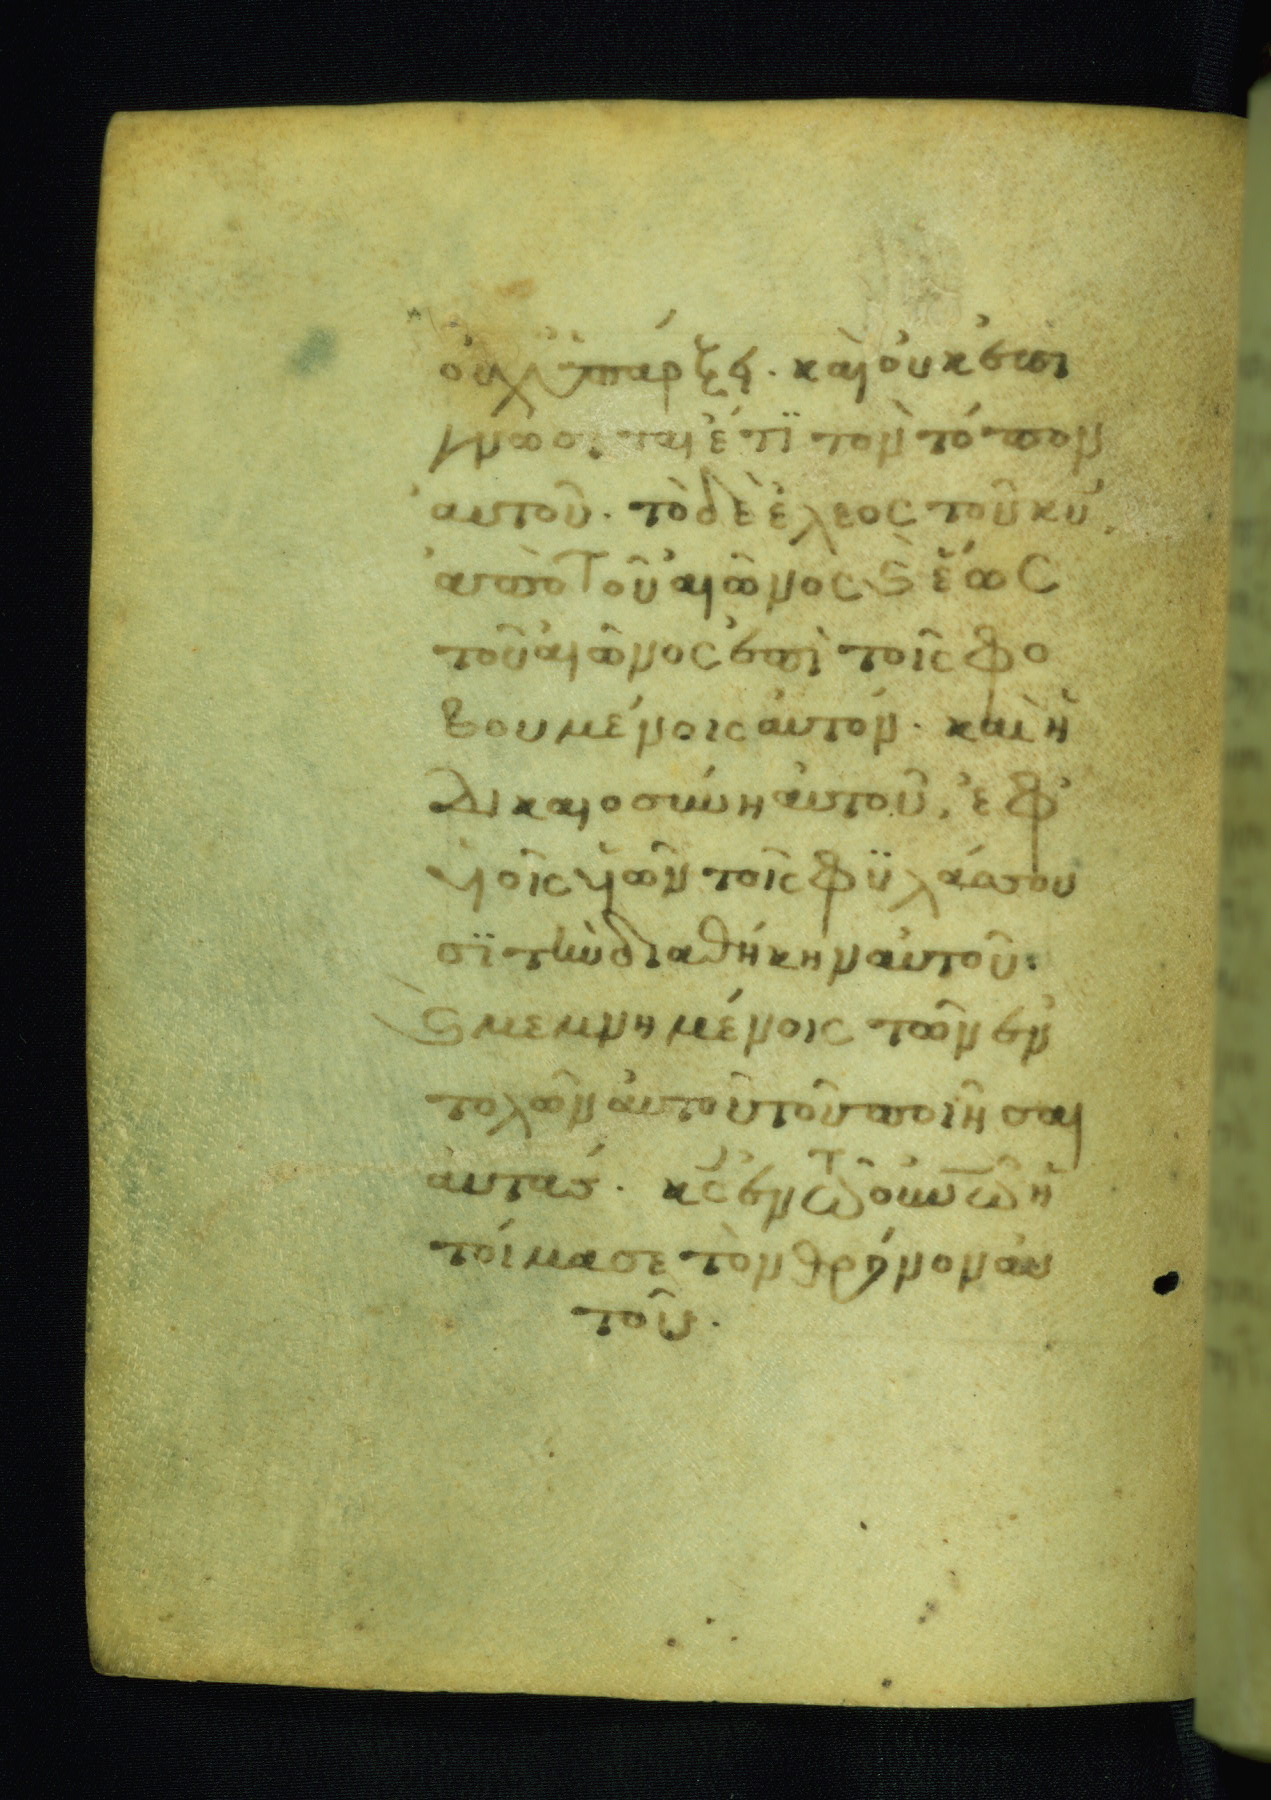 οὐχ ὑπάρξει. καὶ οὐκ ἐπι
γνώσεται ἔτϊ τὸν τόπον
αὐτοῦ. τὸ δὲ ἔλεος τοῦ κυ
ἀπὸ τοῦ αἰῶνος ϗ ἕως
τοῦ αἰῶνος ἐπὶ τοῖς φο
βουμένοις αὐτόν. καὶ ἡ
δικαιοσύνη αὐτοῦ, ἐφ
ϋἱοῖς ϋἱῶν τοῖς φϋλάσσου
σϊ τὴν διαθήκην αὐτοῦ:
ϗ μεμνημένοις τῶν ἐν
τολῶν αὐτοῦ τοῦ ποιῆσαι
αὐτάς. κς ἐν τῶ οὐνῶ ἡ
τοίμασε τὸν θρόνον αὐ
τοῦ.